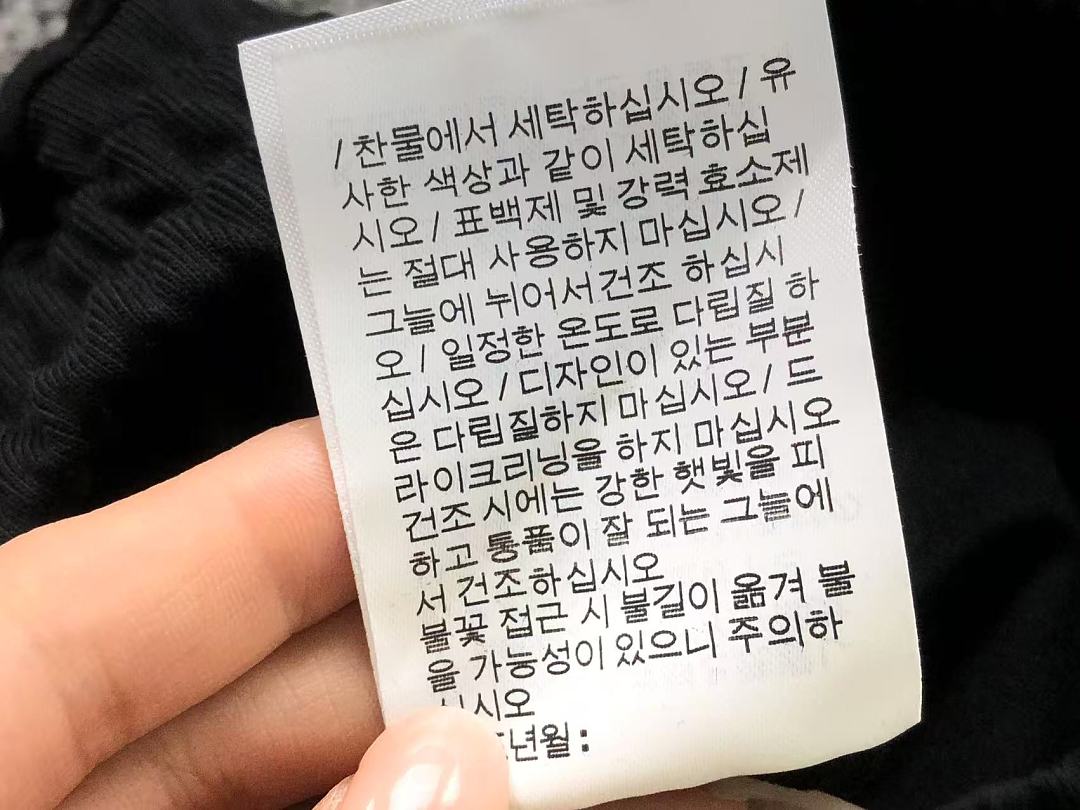 / 찬물에서 세탁하십시오 / 유
사한 색상과 같이 세탁하십
시오 / 표백제 및 강력 효소제
는 절대 사용하지 마십시오 /
그늘에 뉘어서건조 하십시
오 / 일정한 온도로 다림질 하
십시오 / 디자인이 있는 부분
은 다림질하지 마십시오 / 드
라이크리닝을 하지 마십시오
건조 시에는 강한 햇빛을 피
하고 통풍이 잘 되는 그늘에
서 건조하십시오
불꽃 접근 시 불길이 옮겨 붙
을 가능성이 있으니 주의하
십시오
년월 :